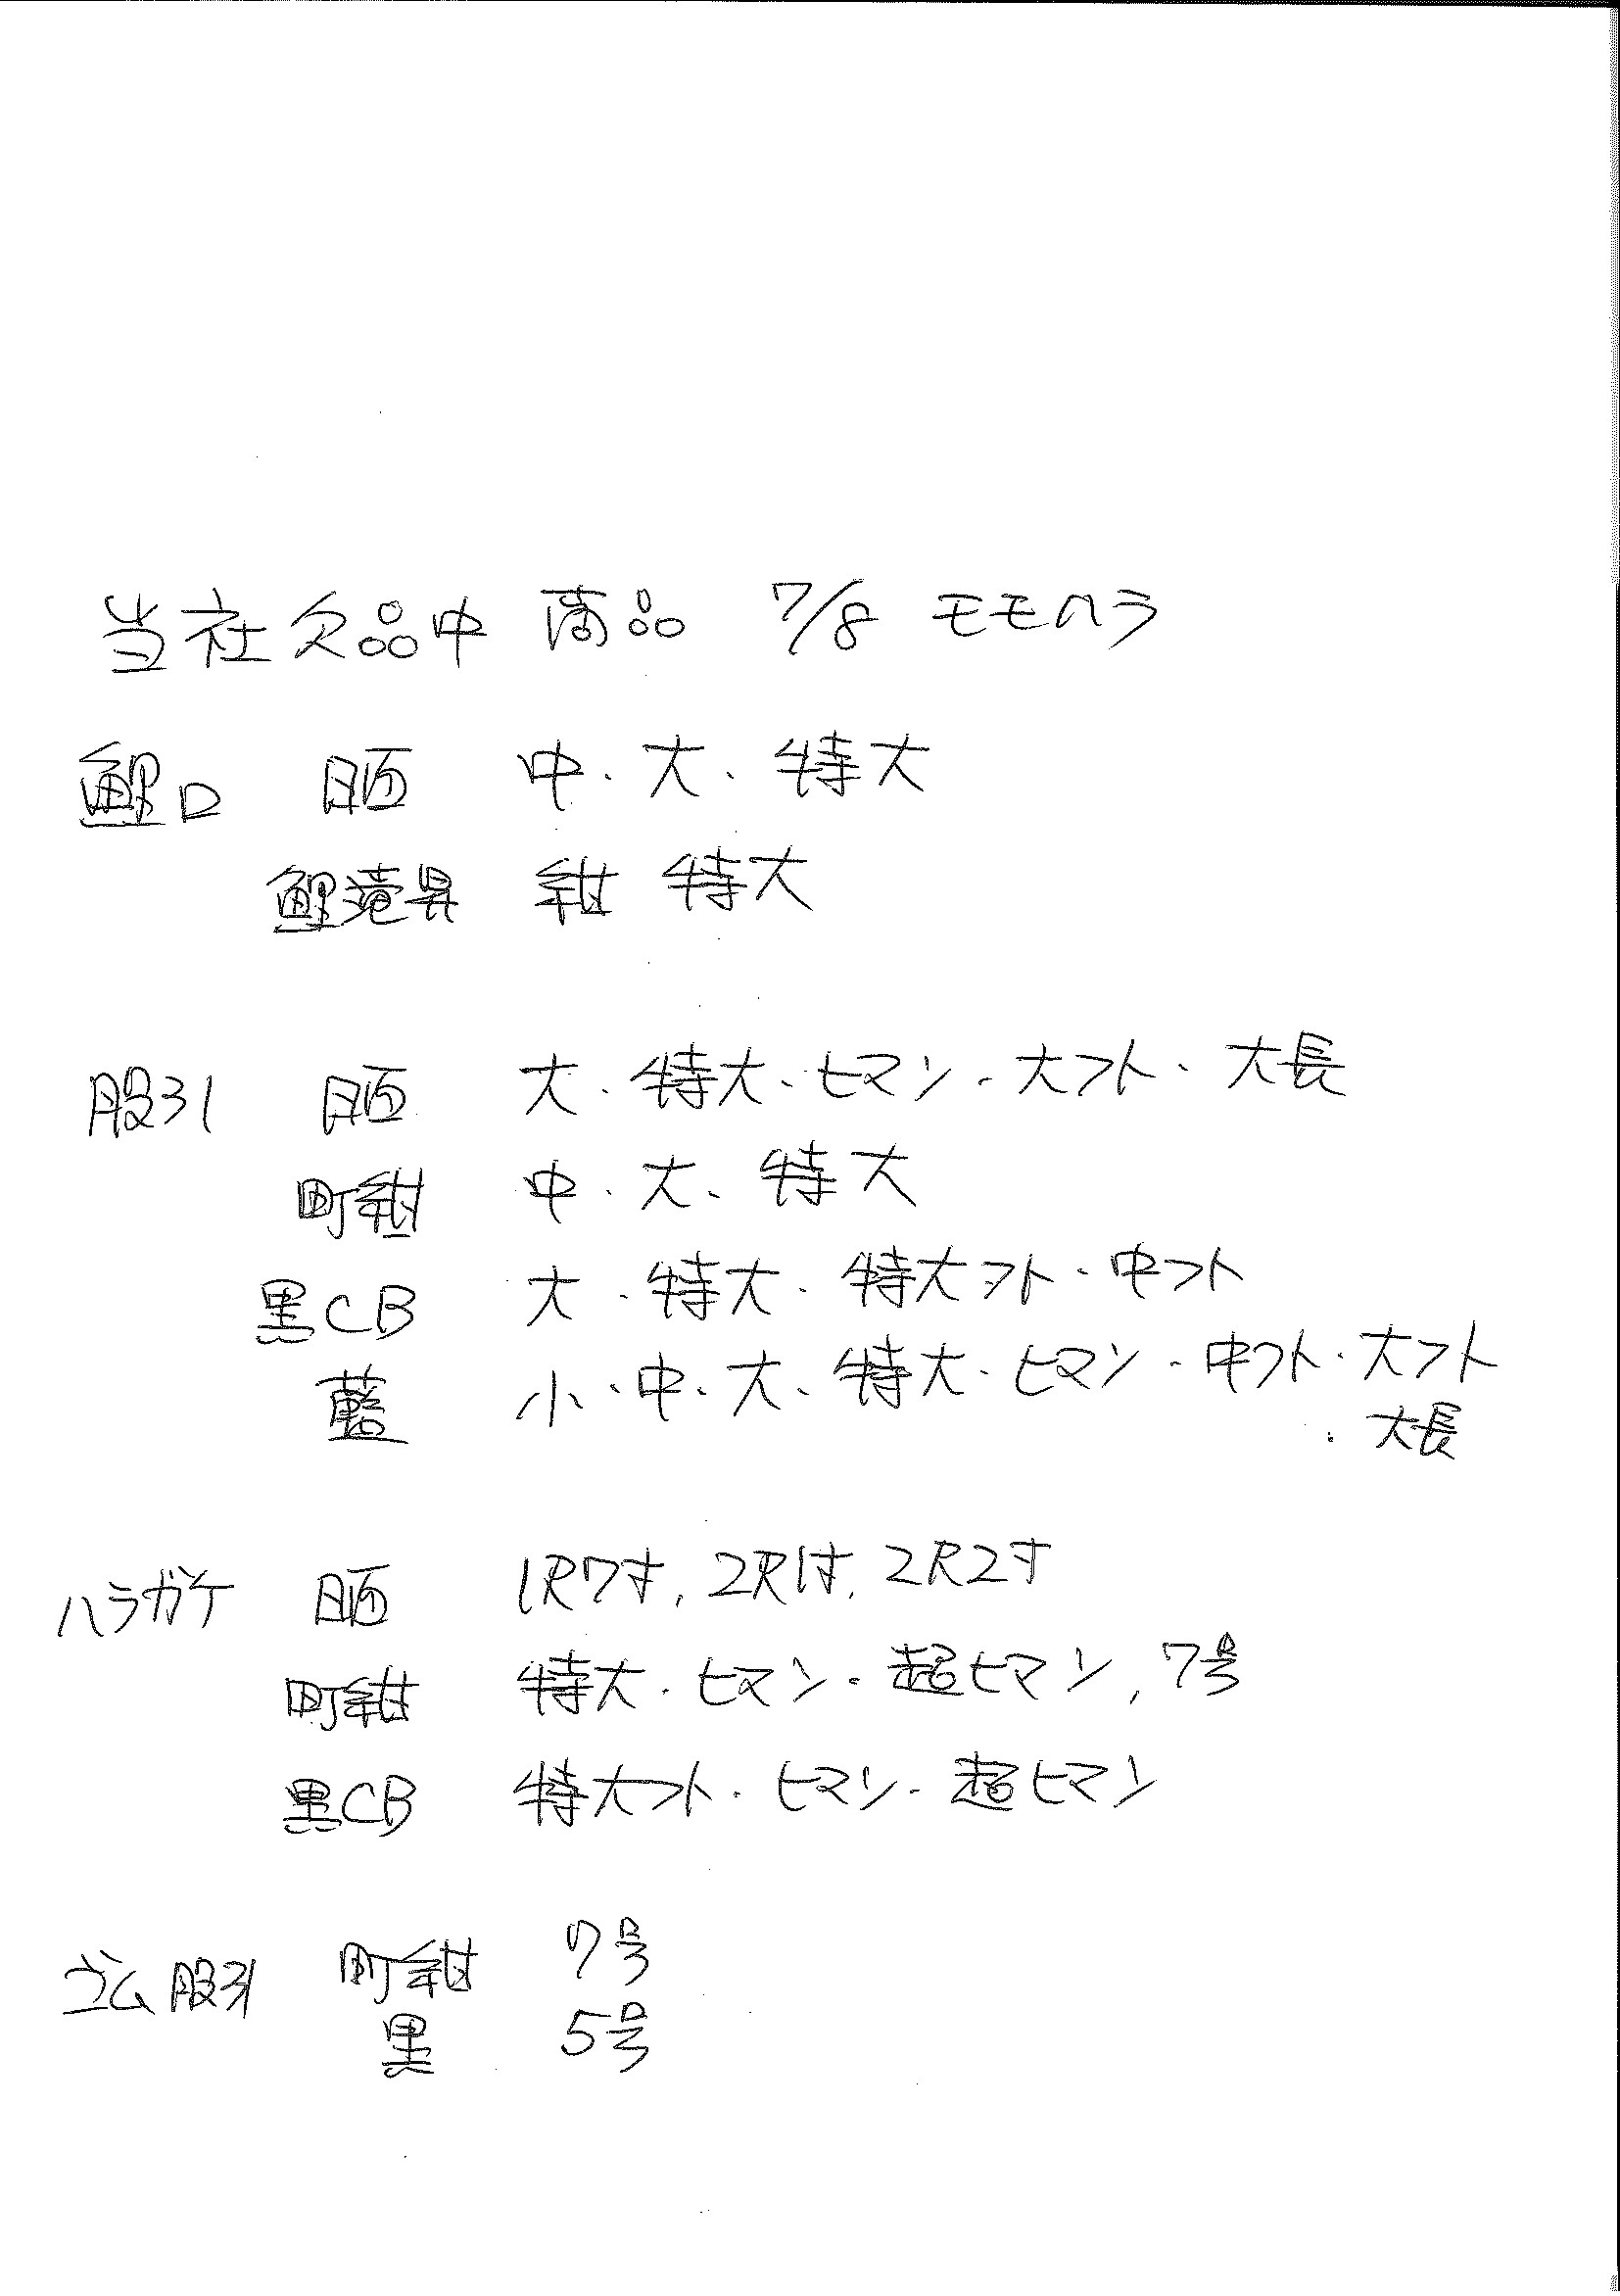 当社欠品中 商品 7/8 モモハラ
鯉口 晒 中・大・特大
鯉滝昇 紺 特大
股引 晒 大・特大・ヒマン・大フト・大長
町紺 中・大・特大
黒CB 大・特大・特大フト・中フト
藍 小・中・大・特大・ヒマン・中フト・大フト
・大長
ハラガケ 晒 1R7寸, 2R1寸, 2R2寸
町紺 特大・ヒマン・超ヒマン, 7号
黒CB 特大フト・ヒマン・超ヒマン
ゴム股引 町紺 7号
黒 5号